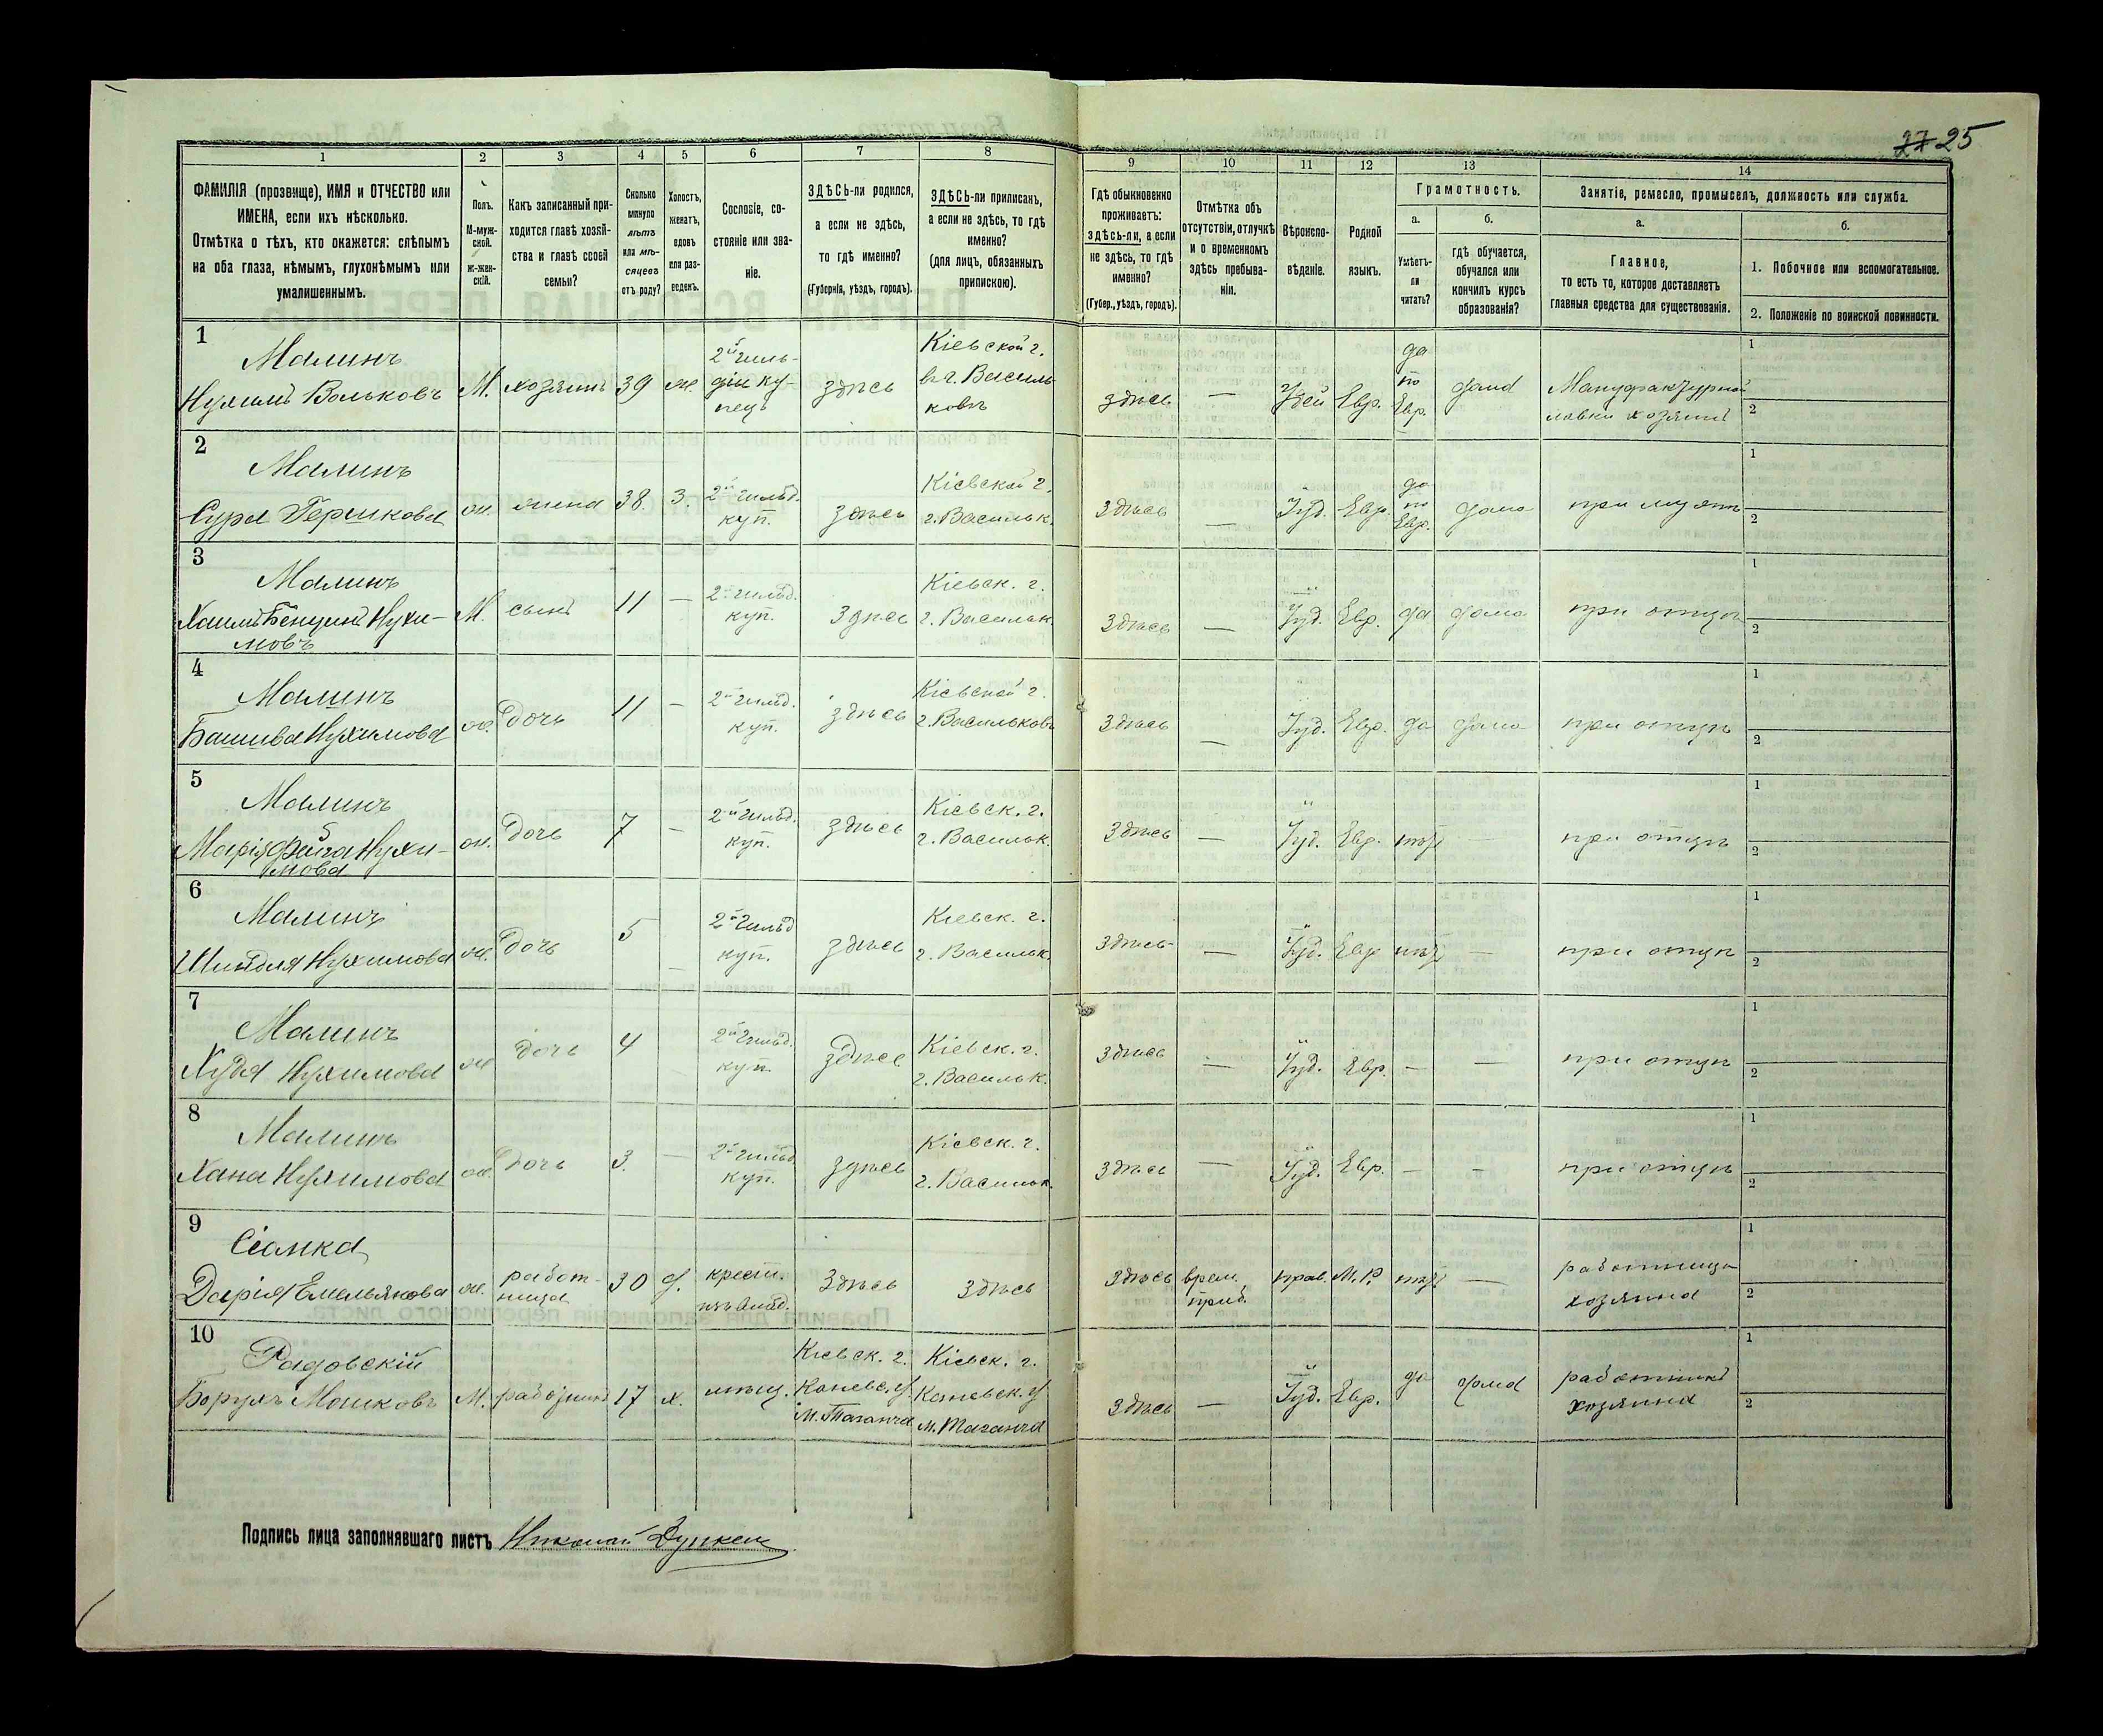 27 25
1 2 3 4 5 6 7 8 9 10 11 12 13 14
ФАМИЛІЯ (прозвище), ИМЯ и ОТЧЕСТВО или ИМЕНА, если ихъ нѣсколько.
Отмѣтка о тѣхъ, кто окажется: слѣпымъ на оба глаза, нѣмымъ, глухонѣмымъ или умалишеннымъ.
Полъ. М-мужской. ж-женскій.
Какъ записанный приходится главѣ хозяйства и главѣ своей семьи?
Сколько минуло лѣтъ или мѣсяцевъ отъ роду?
Холостъ, женатъ, вдовъ или разведенъ.
Сословіе, состояніе или званіе.
ЗДѢСЬ-ли родился, а если не здѣсь, то гдѣ именно?
(Губернія, уѣздъ, городъ).
ЗДѢСЬ-ли приписанъ, а если не здѣсь, то гдѣ именно?
(для лицъ, обязанныхъ припискою).
Гдѣ обыкновенно проживаетъ: здѣсь-ли, а если не здѣсь, то гдѣ именно?
(Губер., уѣздъ, городъ).
Отмѣтка объ отсутствіи, отлучкѣ и о временномъ здѣсь пребываніи.
Вѣроисповѣданіе.
Родной языкъ.
Грамотность.
а. Умѣетъ-ли читать?
б. гдѣ обучается, обучался или кончилъ курсъ образованія?
Занятіе, ремесло, промыселъ, должность или служба.
а. Главное, то есть то, которое доставляетъ главныя средства для существованія.
б.
1. Побочное или вспомогательное.
2. Положеніе по воинской повинности.
1 Малинъ Нухимъ Вольковъ М. хозяинъ 39 ж. 2й гильдіи купец здѣсь Кіевской г. въ г. Васильковѣ здѣсь — Іудей Евр. да по Евр. дома Мануфактурной лавки хозяинъ 1 2
2 Малинъ Сура Гершкова ж. жена 38. З. 2й гильд. куп. здѣсь Кіевской г. г. Васильк. здѣсь — Іуд. Евр. да по Евр. дома при мужѣ 1 2
3 Малинъ Хаимъ Бенционъ Нухимовъ М. сынъ 11 — 2й гильд. куп. здѣсь Кіевск. г. г. Васильк. здѣсь — Іуд. Евр. да дома при отцѣ 1 2
4 Малинъ Башива Нухимова ж. дочь 11 — 2й гильд. куп. здѣсь Кіевской г. г. Васильковъ здѣсь — Іуд. Евр. да дома при отцѣ 1 2
5 Малинъ Марія Файга Нухимова ж. Дочь 7 — 2й гильд. куп. здѣсь Кіевск. г. г. Васильк. здѣсь — Іуд. Евр. нѣт — при отцѣ 1 2
6 Малинъ Шийдля Нухимова ж. Дочь 5 — 2й гильд куп. здѣсь Кіевск. г. г. Васильк. здѣсь — Іуд. Евр нѣт — при отцѣ 1 2
7 Малинъ Худя Нухимова ж дочь 4 — 2й гильд. куп. здѣсь Кіевск. г. г. Васильк. здѣсь — Іуд. Евр. — — при отцѣ 1 2
8 Малинъ Хана Нухимова ж. Дочь 3. — 2й гильд куп. здѣсь Кіевск. г. г. Васильк. здѣсь — Іуд. Евр. — — при отцѣ 1 2
9 Дарія Емельянова ж. работница 30 д. здѣсь здѣсь здѣсь врем. преб. прав. М.Р. нѣт — работница хозяина 1 2
10 Радовскій Борухъ Мошковъ М. работникъ 17 х. мѣщ. Кіевск. г. Каневс. у. м. Таганча Кіевск. г. Каневск. у м. Таганча здѣсь — Іуд. Евр. да дома работникъ хозяина 1 2
Подпись лица заполнявшаго листъ Николай